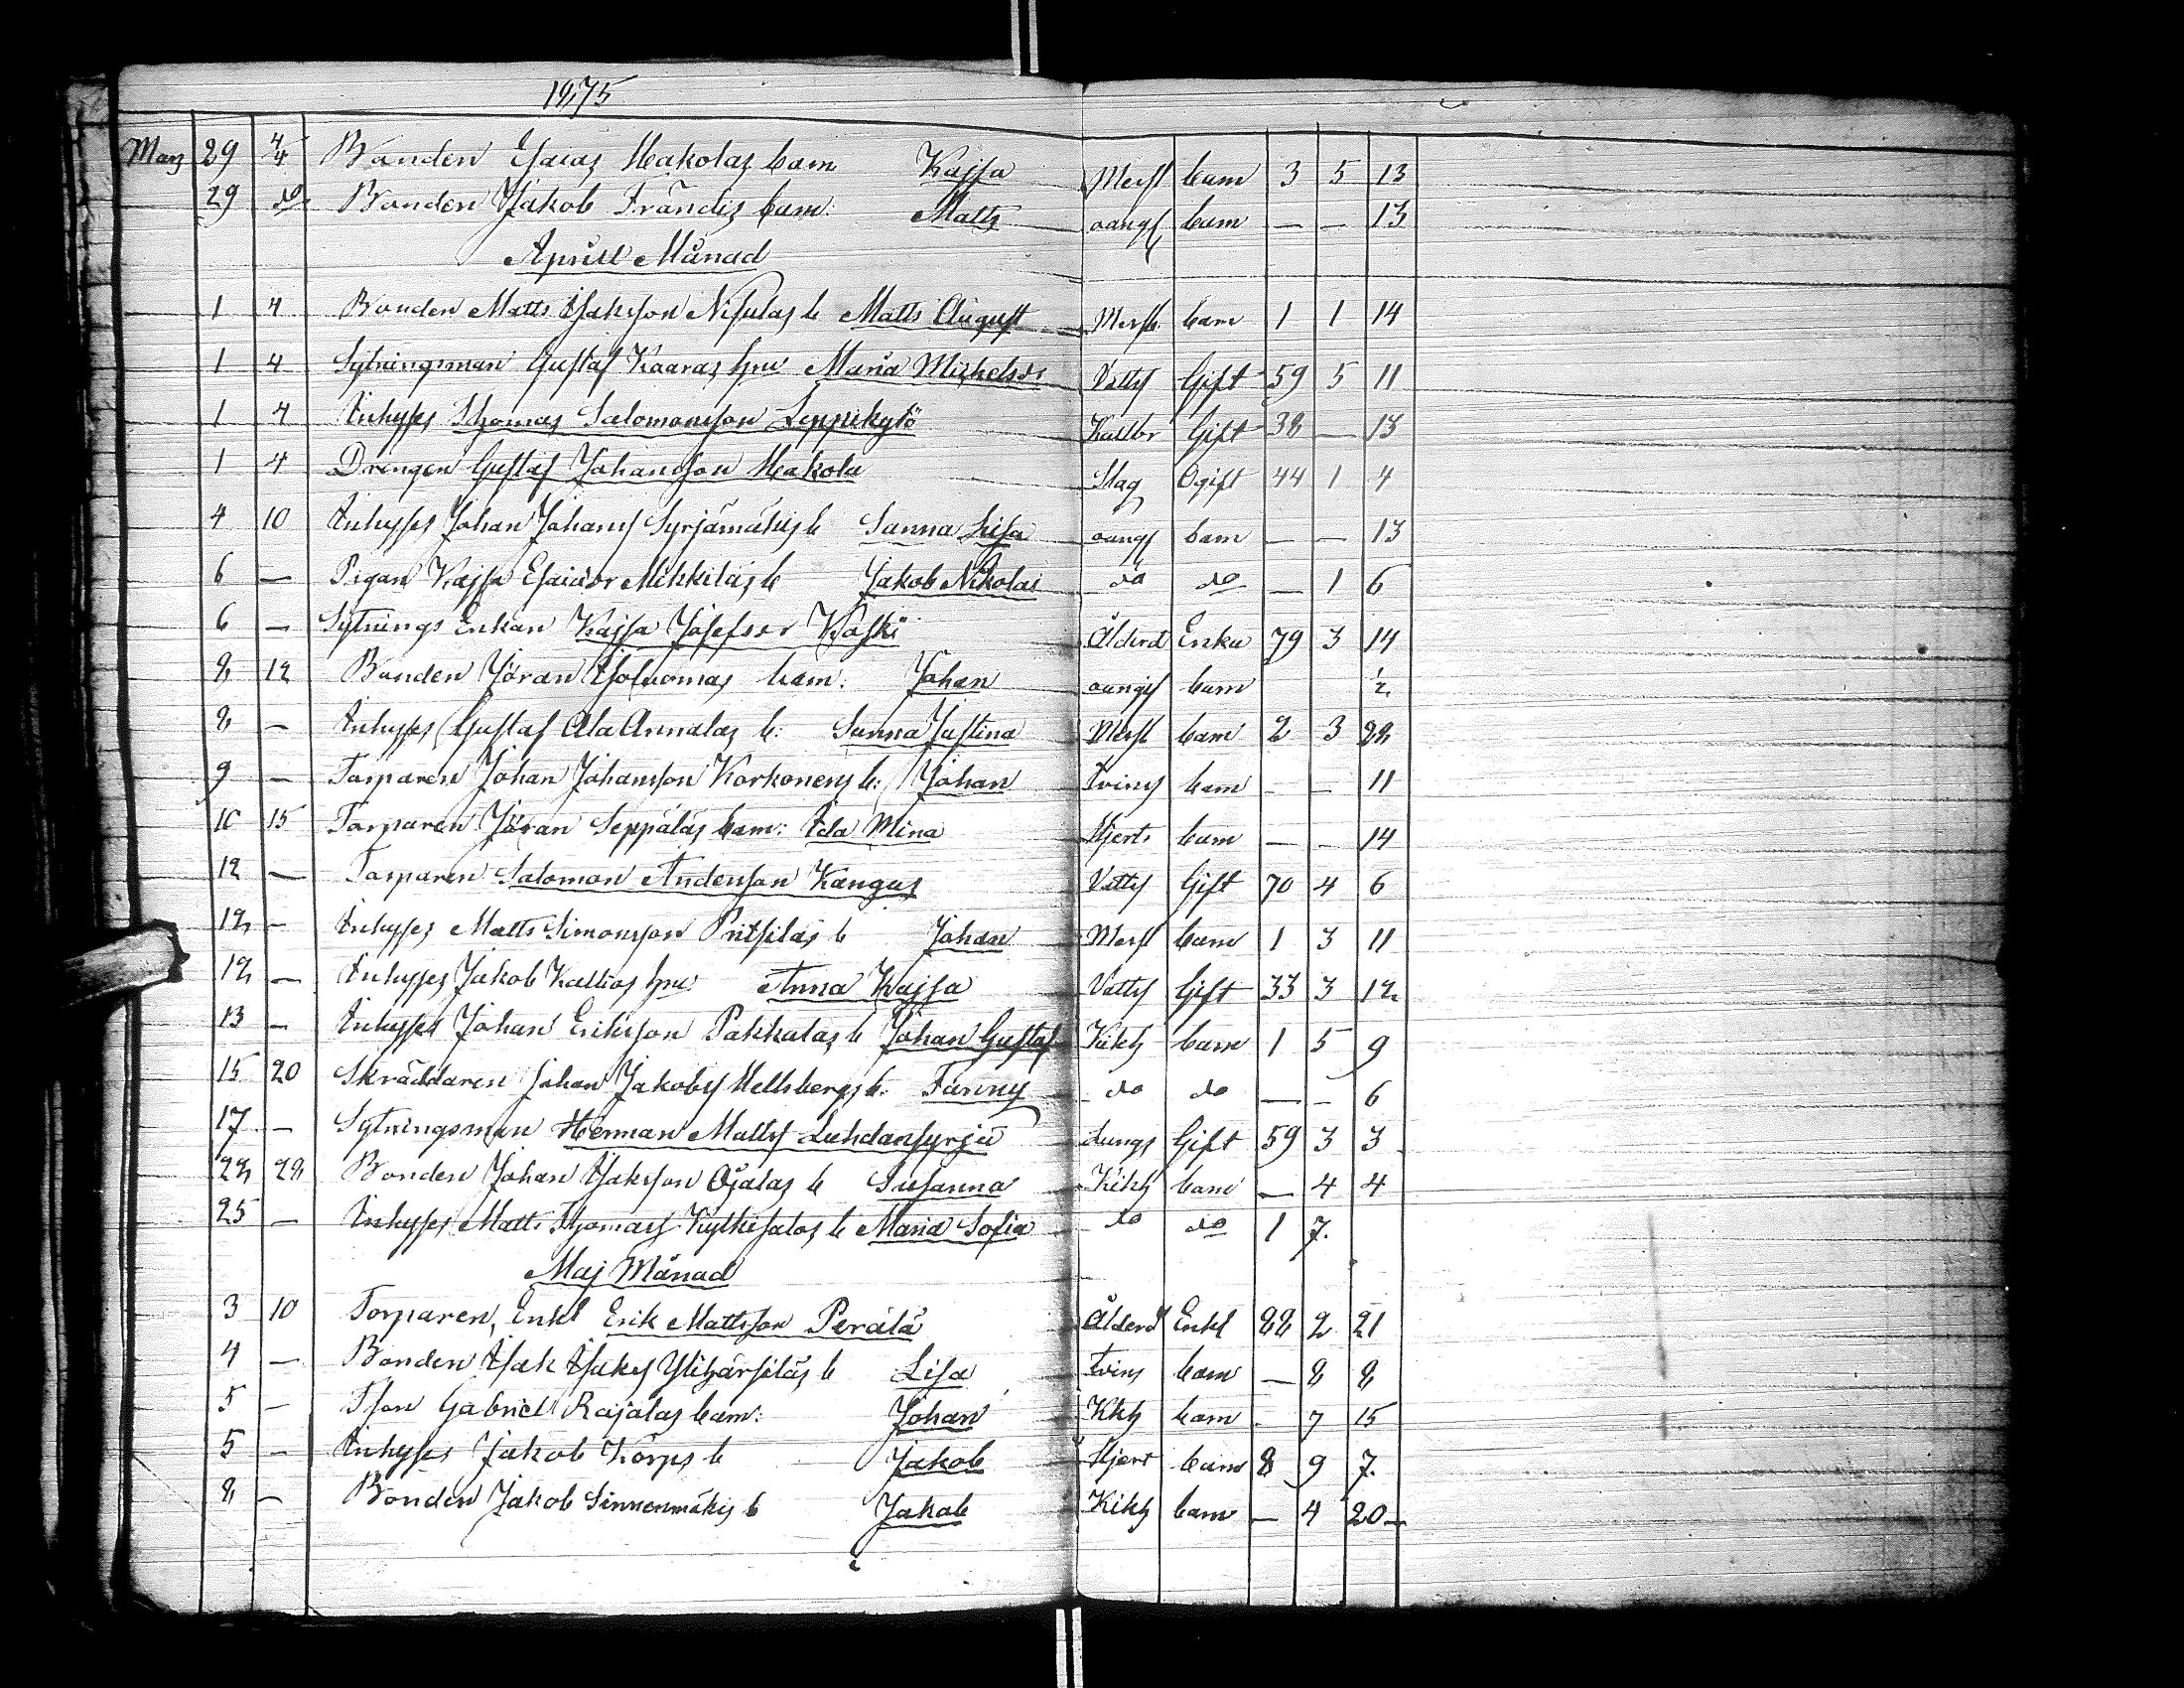 1875
Marz 29 4/4 Bonden Esaias Hakolas barn Kajsa Mesl barn 3 5 13
29 do Bonden Jakob Frändis barn: Matts oangf barn — — 13
April Månad
1 4 Bonden Matts Isaksson Nisulas b Matts August Mesl barn 1 1 14
1 4 Sytningsman Gustaf Kaaras hru Maria Michelsdr Vatts Gift 59 5 11
1 4 Inhyses Thomas Salomonsson Leppikytö Kallbr Gift 38 — 13
1 4 Drengen Gustaf Johansson Hakola Slag Ogift 44 1 4
4 10 Inhyses Johan Johans Syrjämäkis b Sanna Lisa oangf barn — — 13
6 — Pigan Kajsa Esaiædr Mikkiläs b Jakob Nikolai do do — 1 6
6 — Sytnings Enkan Kajsa Josefsdr Koski Ålderd Enka 79 3 14
8 12 Bonden Jöran Isoluomas barn: Johan oangif barn ½
8 — Inhyses Gustaf Ala Annalas b: Sanna Justina Mesl barn 2 3 28
9 — Torparen Johan Johansson Korkonens b: Johan Tvins barn — — 11
10 15 Torparen Jöran Seppäläs barn: Ida Mina Hjerts barn — — 14
12 — Torparen Salomon Andersson Kangas Vatts Gift 70 4 6
12 — Inhyses Matts Simonsson Pritsiläs b Johan Mesl barn 1 3 11
12 — Inhyses Jakob Kallios hru Anna Kajsa Vatts Gift 33 3 12
13 — Inhyses Johan Eriksson Pakkalas b Johan Gustaf Kikh barn 1 5 9
15 20 Skräddaren Johan Jakobs Hellsbergs b: Fanny do do — — 6
17 — Sytningsman Herman Matts Luhdansyrjä Lungs Gift 59 3 3
22 28 Bonden Johan Isaksson Ojalas b Susanna Kikh barn — 4 4
25 — Inhyses Matts Thomas Kytkisalos b Maria Sofia do do 1 7.
Maj Månad
3 10 Torparen, Enkl Erik Mattsson Perälä Ålderd Enkl 88 2 21
4 — Bonden Isak Isaks Ylihärsiläs b Lisa Tvins barn — 8 8
5 — Tson Gabriel Rajalas barn: Johan Kkh barn — 7 15
5 — Inhyses Jakob Körps b Jakob Hjert barn 8 9 7.
8 — Bonden Jakob Sinnenmäkis b Jakob Kikh barn — 4 20 —